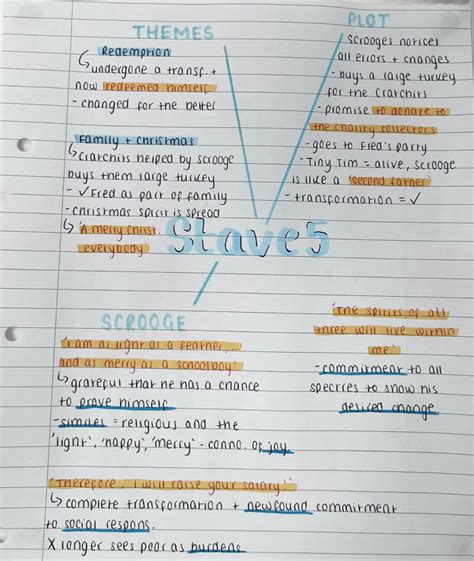 THEMES
Redemption
↳ undergone a transf. +
now redeemed himself
- changed for the better
Family + christmas
↳ cratchits helped by scrooge
buys them large turkey
- ✓Fred as part of family
- christmas spirit is spread
↳ 'A merry christ.
everybody'
PLOT
Scrooges notices
all errors + changes
- buys a large turkey
for the cratchits
- promise to donate to
the charity collectors
- goes to Fred's party
- Tiny Tim = alive, scrooge
is like a 'second father'
- transformation = ✓
Stave 5
SCROOGE
'I am as light as a feather,
and as merry as a schoolboy'
↳ grateful that he has a chance
to prove himself
- similes = religious and the
'light', 'happy', 'merry' - conno. of joy
'The spirits of all
three will live within
me'
- commitment to all
spectres to show his
desired change
'Therefore, I will raise your salary!'
↳ complete transformation + newfound commitment
to social respons.
X longer sees poor as burdens